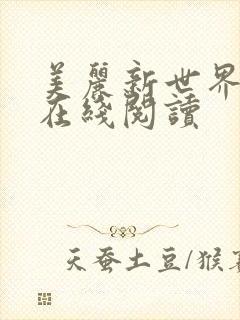 美麗新世界
在綫閱讀
天蚕土豆/猴